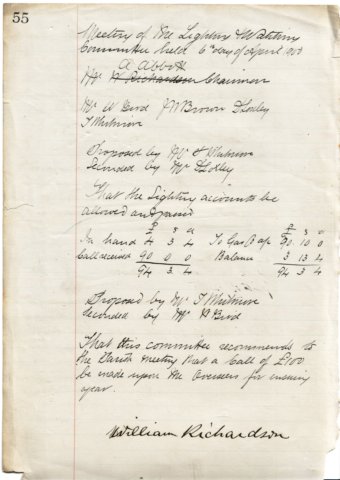 55
Meeting of the Lighting & Watching
Committee held 6th day of April 1903
A Abbott
Mr A Richardson Chairman
Mr W Bird J W Brown D Loxley
T Whitmore
Proposed by Mr T Whitmore
Seconded by Mr D Loxley
That the Lighting accounts be
allowed and passed
£ s d £ s d
In hand 4 3 4 To Gas B a/c 90 10 0
Call received 90 0 0 Balance 3 13 4
94 3 4 94 3 4
Proposed by Mr T Whitmore
Seconded by Mr Bird
That this committee recommends to
the Parish meeting that a Call of £100
be made upon the Overseers for ensuing
year.
William Richardson